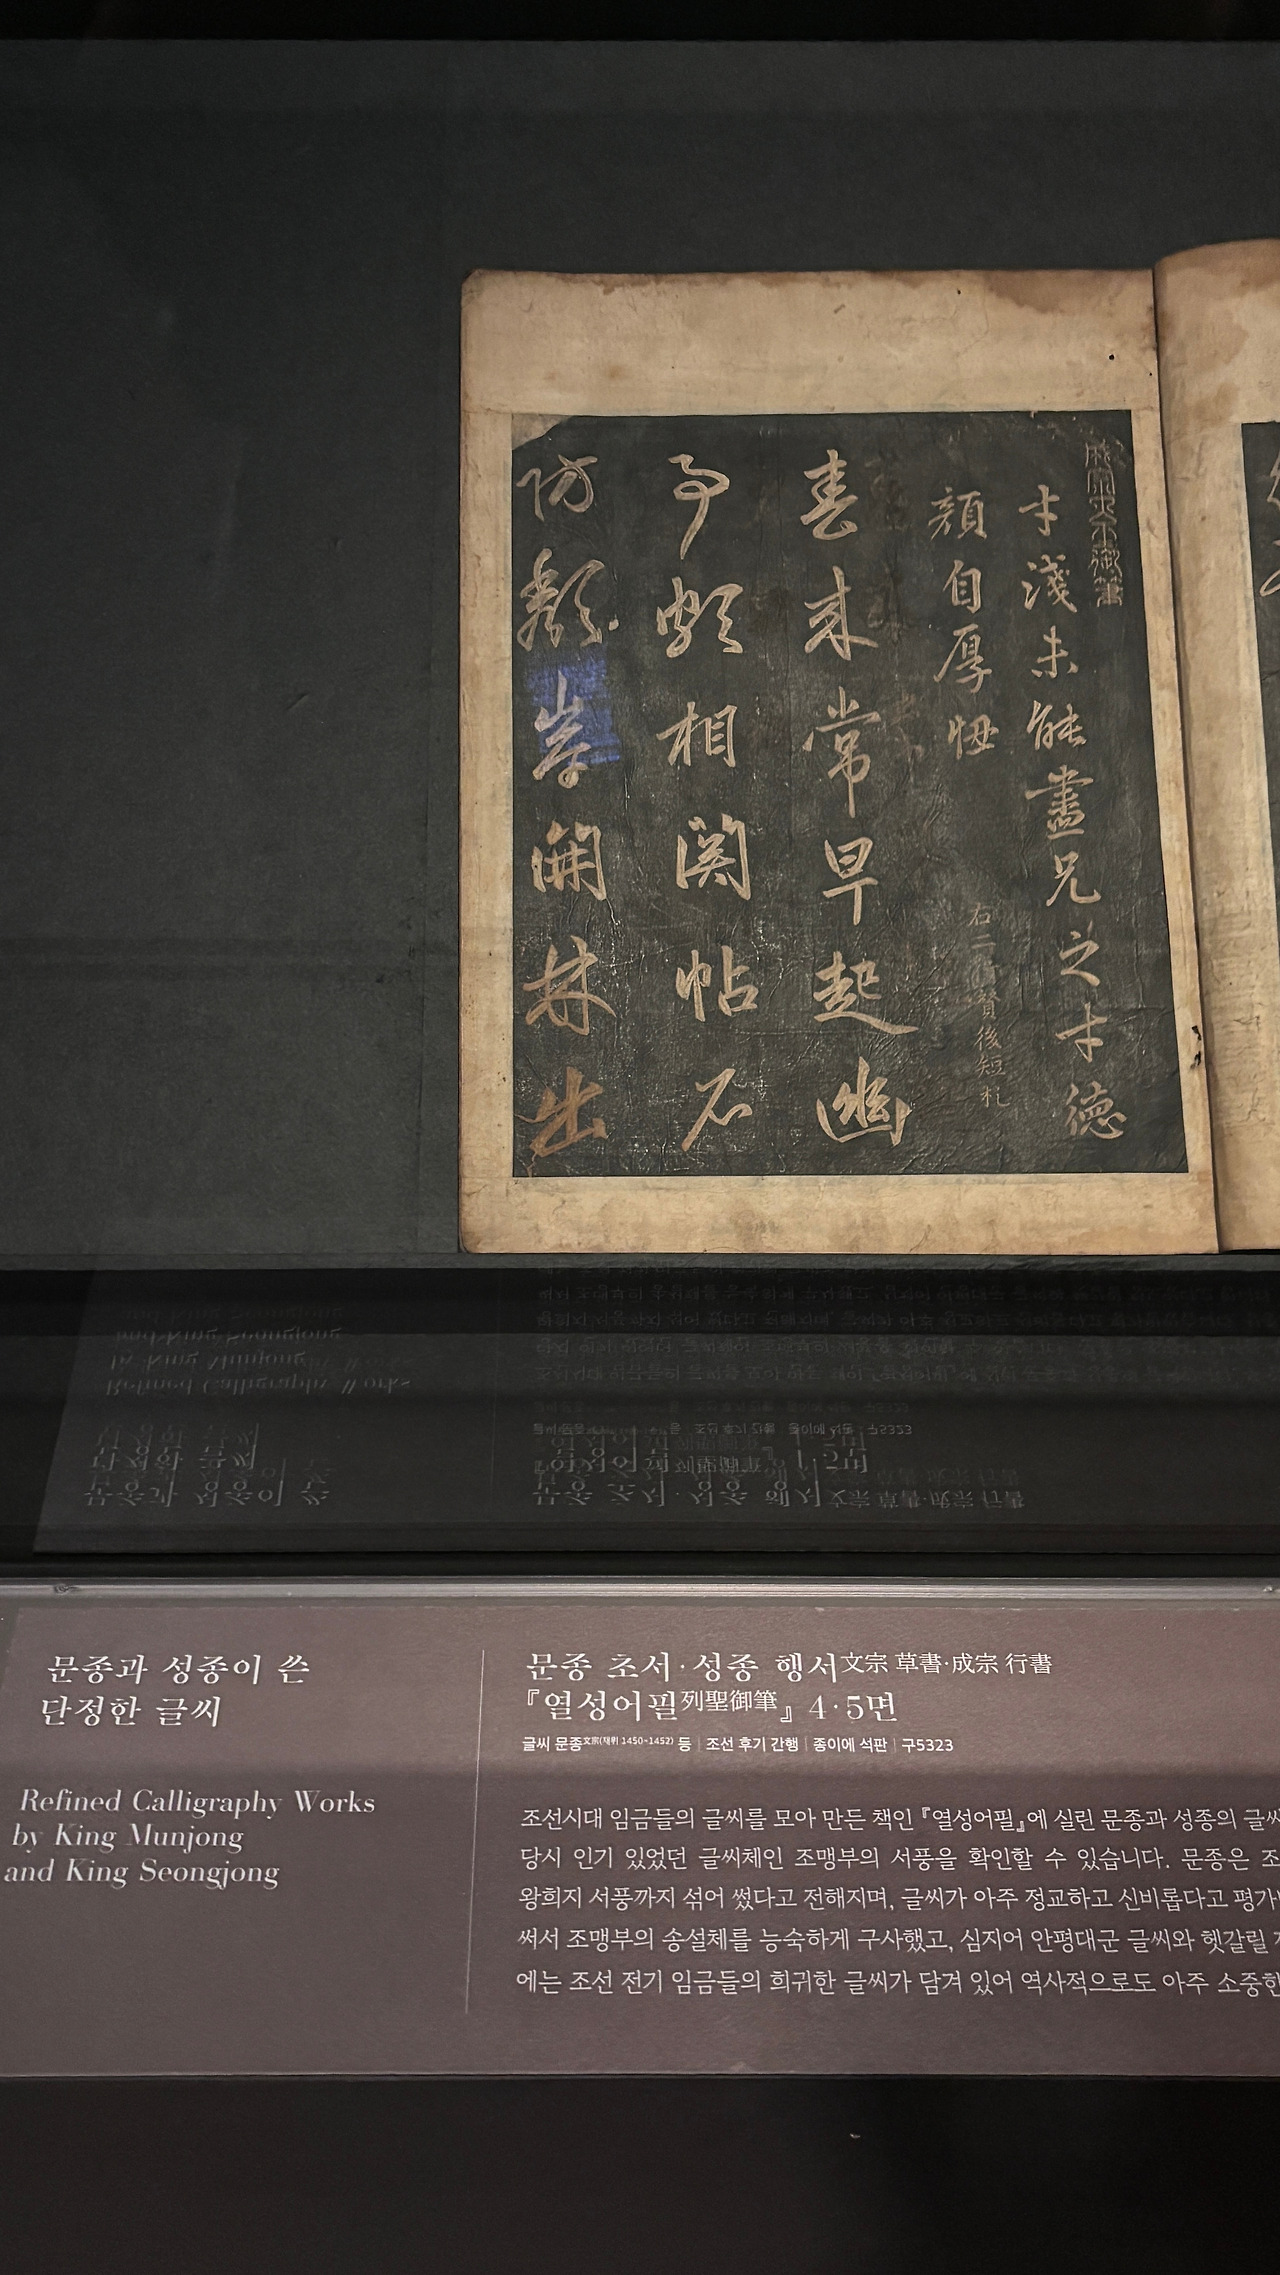 成宗大王御筆
才淺未能盡兄之才德
顔自厚忸
右二 賢後短札
春來常早起幽
事頗相関帖石
防頹岸開林出
문종과 성종이 쓴
단정한 글씨
Refined Calligraphy Works
by King Munjong
and King Seongjong
문종 초서·성종 행서文宗 草書·成宗 行書
『열성어필列聖御筆』 4·5면
글씨 문종文宗(재위 1450~1452) 등 | 조선 후기 간행 | 종이에 석판 | 구5323
조선시대 임금들의 글씨를 모아 만든 책인 『열성어필』에 실린 문종과 성종의 글씨
당시 인기 있었던 글씨체인 조맹부의 서풍을 확인할 수 있습니다. 문종은 조
왕희지 서풍까지 섞어 썼다고 전해지며, 글씨가 아주 정교하고 신비롭다고 평가
써서 조맹부의 송설체를 능숙하게 구사했고, 심지어 안평대군 글씨와 헷갈릴
에는 조선 전기 임금들의 희귀한 글씨가 담겨 있어 역사적으로도 아주 소중한